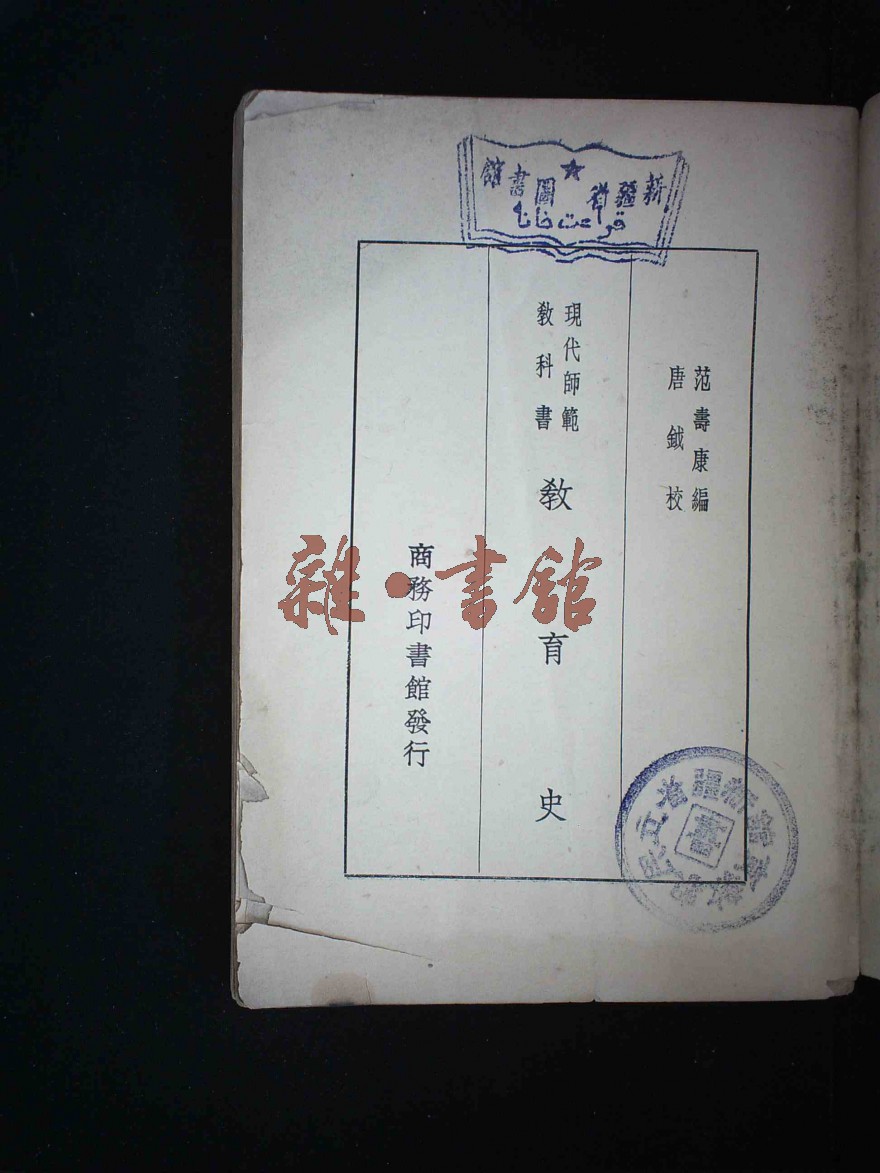 新疆省圖書館
قراءت خانه
范壽康編
唐鉞校
現代師範
教科書
教育史
商務印書館發行
雜·書館